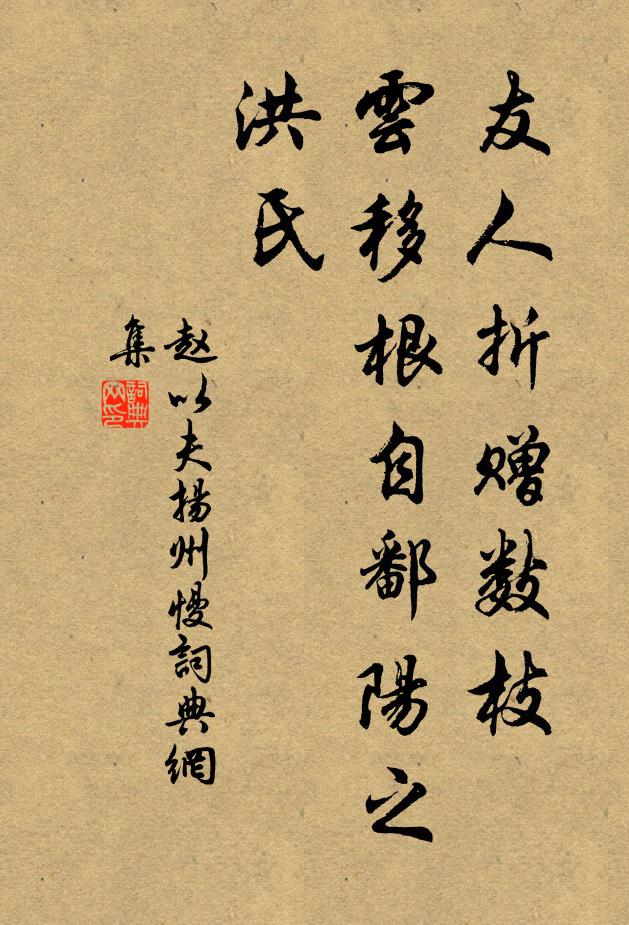 友人折赠数枝
雲移根自鄱陽之
洪氏
赵以夫揚州慢詞典網
集
詞典網印